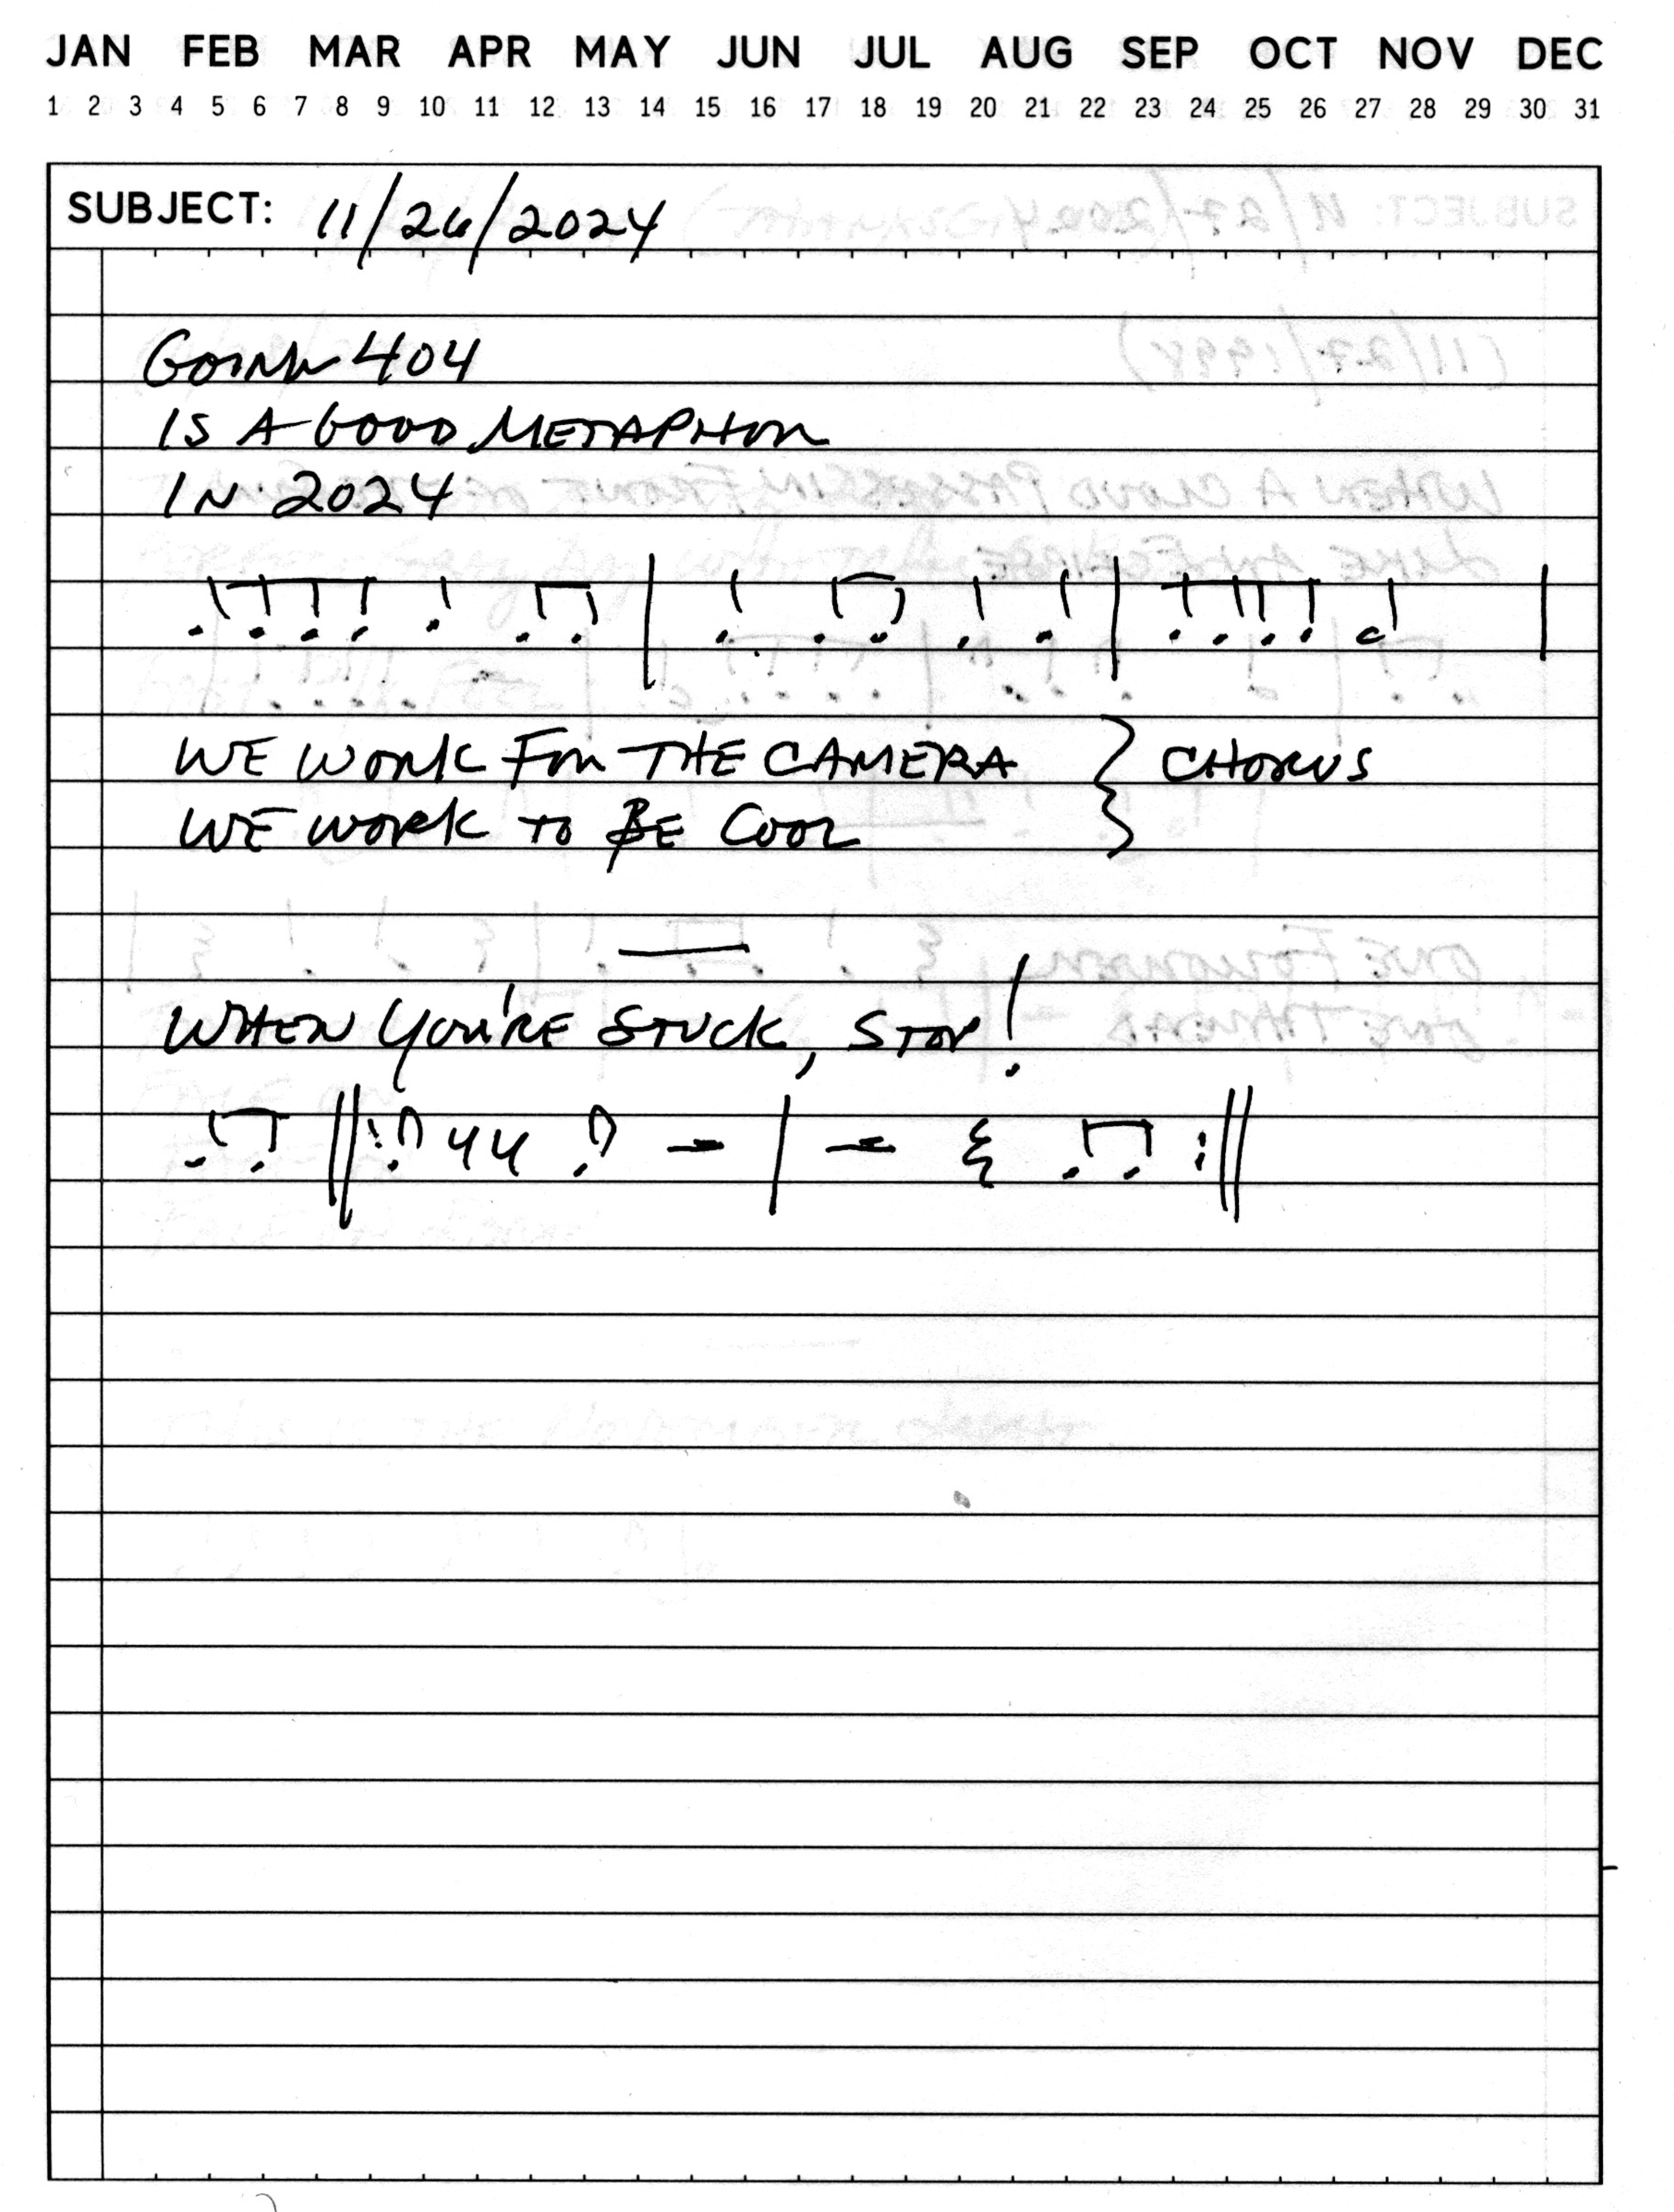 JAN FEB MAR APR MAY JUN JUL AUG SEP OCT NOV DEC
1 2 3 4 5 6 7 8 9 10 11 12 13 14 15 16 17 18 19 20 21 22 23 24 25 26 27 28 29 30 31
SUBJECT: 11/26/2024
GOING 404
IS A GOOD METAPHOR
IN 2024
WE WORK FOR THE CAMERA } CHORUS
WE WORK TO BE COOL
WHEN YOU'RE STUCK, STOP!